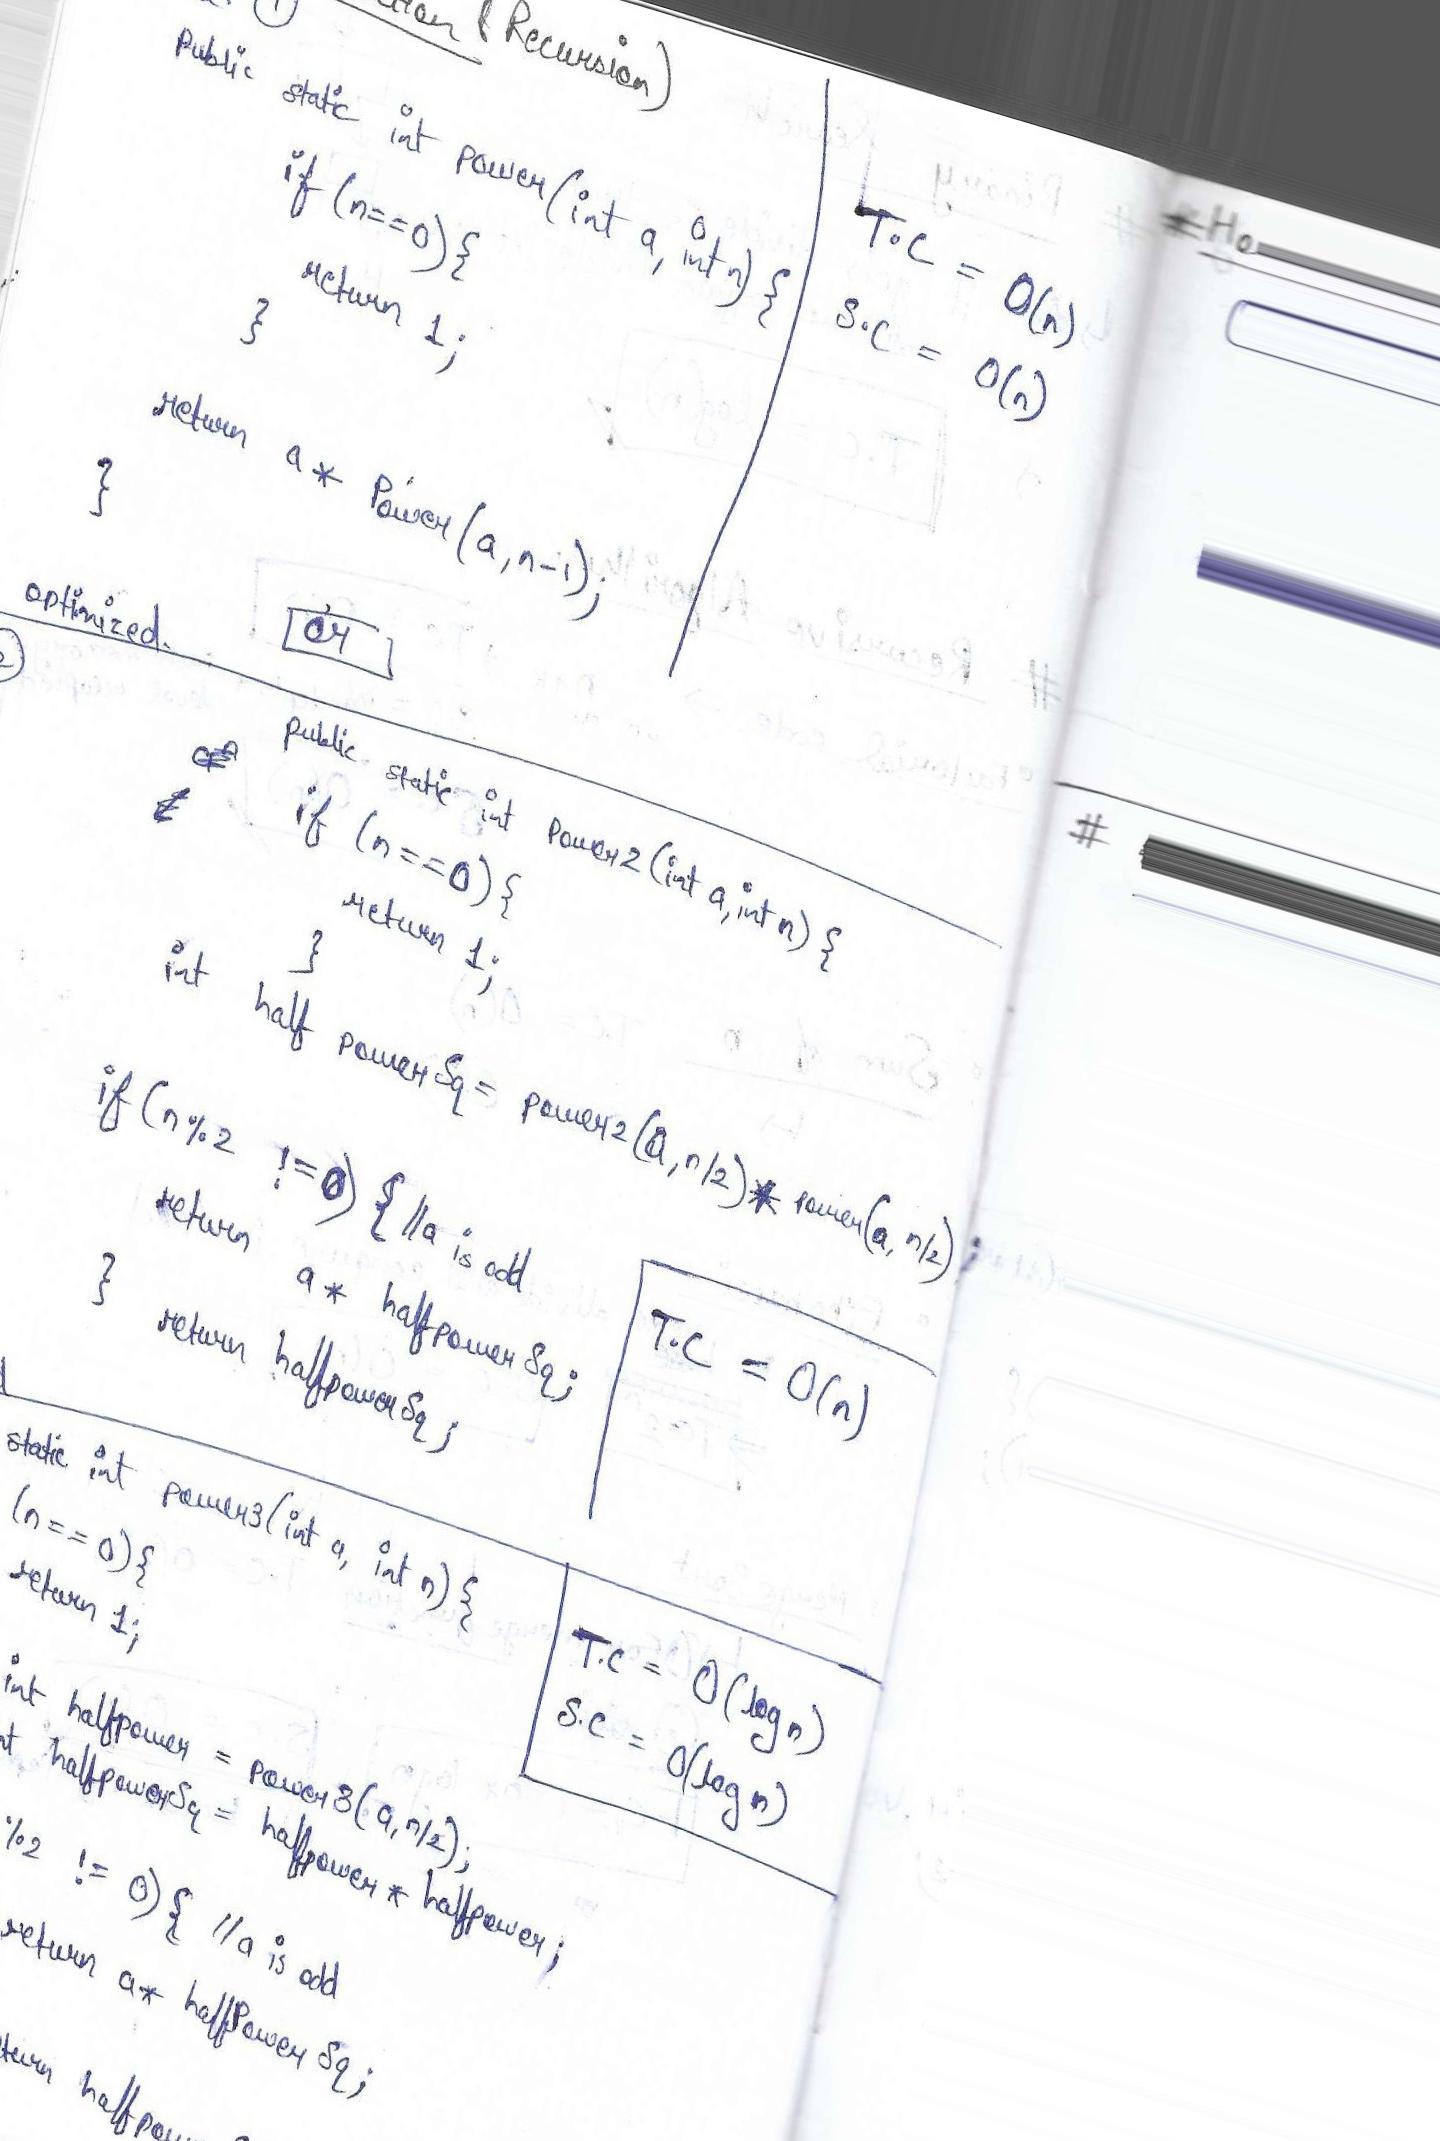 ①
& Recursion)
Public static int power(int a, int n) {
if (n==0) {
return 1;
}
return a * Power(a, n-1);
}
T.C = O(n)
S.C = O(n)
optimized.
or
public static int Power2(int a, int n) {
if (n==0) {
return 1;
}
int half powerSq = power2(a, n/2) * power(a, n/2);
if (n%2 !=0) { //a is odd
return a * halfpowerSq;
}
return halfpowerSq;
T.C = O(n)
static int power3(int a, int n) {
(n==0) {
return 1;
int halfpower = power3(a, n/2);
nt halfpowerSq = halfpower * halfpower;
%2 != 0) { //a is odd
return a* halfPowerSq;
turn halfpower
T.C = O(log n)
S.C = O(log n)
# Ho
#